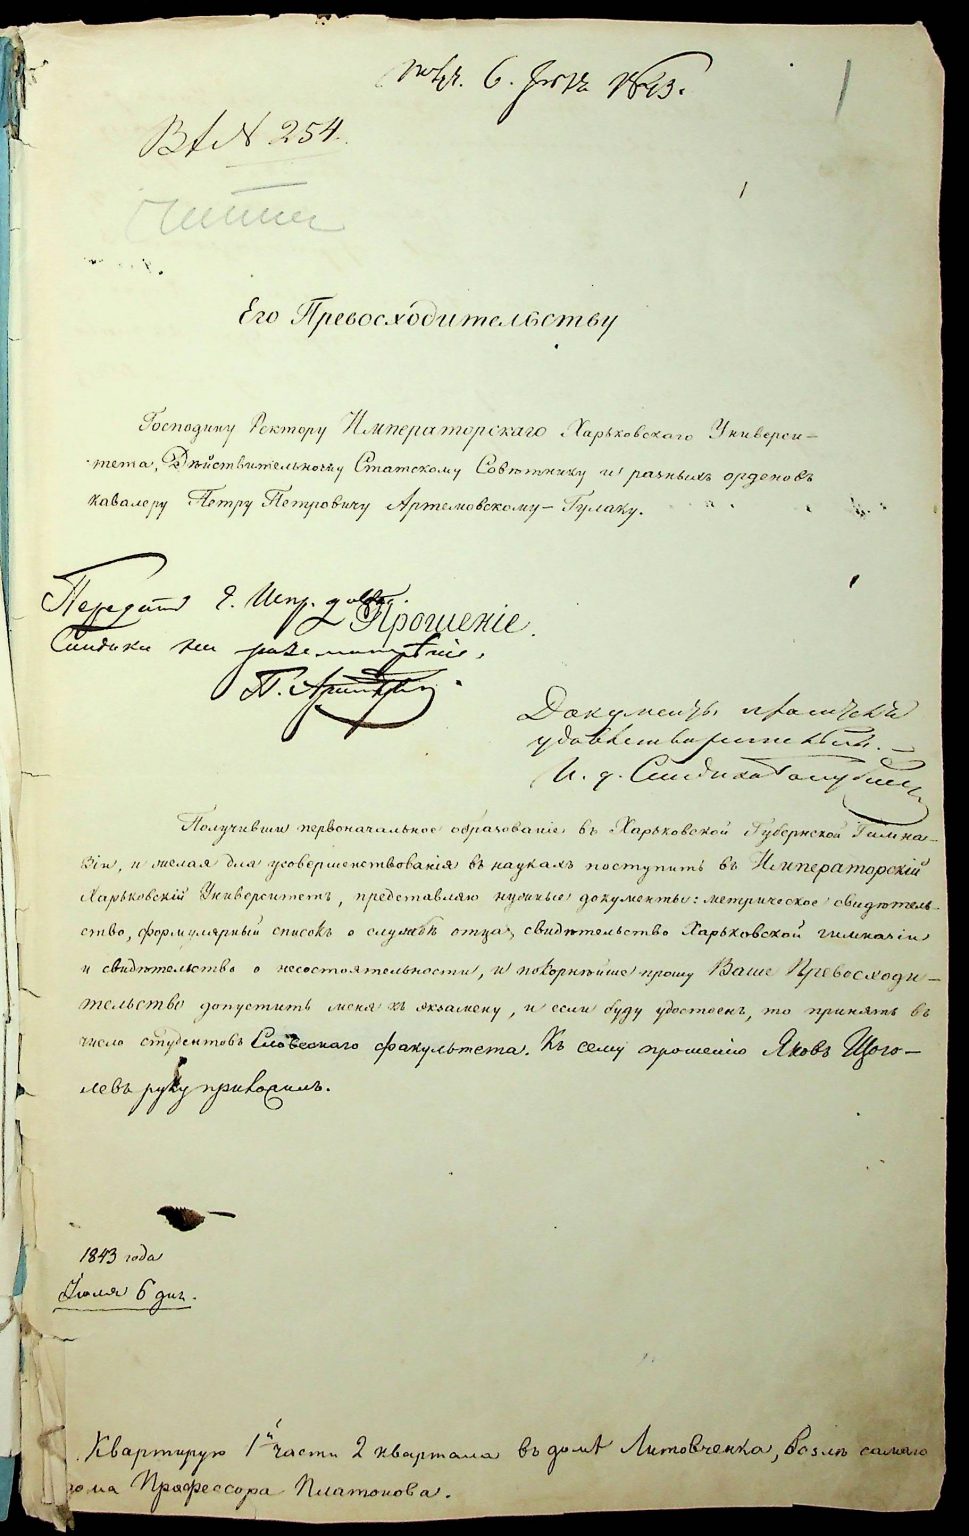 6. Іюля 1843.
ВХ № 254.
Его Превосходительству
Господину Ректору Императорскаго Харьковскаго Универси-
тета, Действительному Статскому Совѣтнику и разныхъ орденовъ
кавалеру Петру Петровичу Артемовскому-Гулаку.
Передать Г. Испр. долж.
Прошеніе.
Синдика на разсмотрѣніе.
Документы
удовлетворительны.
И. д. Синдика
Получивши первоначальное образованіе въ Харьковской Губернской Гимна-
зіи, и желая для усовершенствованія въ наукахъ поступить въ Императорскій
Харьковскій Университетъ, представляю нужные документы: метрическое свидѣтель-
ство, формулярный списокъ о службѣ отца, свидѣтельство Харьковской гимназіи
и свидѣтельство о несостоятельности, и покорнѣйше прошу Ваше Превосходи-
тельство допустить меня къ экзамену, и если буду удостоенъ, то принять въ
число студентовъ Словеснаго факультета. Къ сему прошенію Яковъ Щого-
левъ руку приложилъ.
1843 года
Іюля 6 дня.
Квартирую 1й части 2 квартала въ домѣ Литовченка, возлѣ самаго
дома Профессора Платонова.